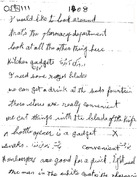 1408
I would like to look around
that's the glossary department
look at all the other thing here
Kitchen gadgets
I need some razor blades
we can get a drink at the soda fountain
these stores are really convenient
we cut things with the blade of the knife
a bottle opener is a gadget X
convenient
hamburgers are good for a quick
the man in the white coat is the pharmacist